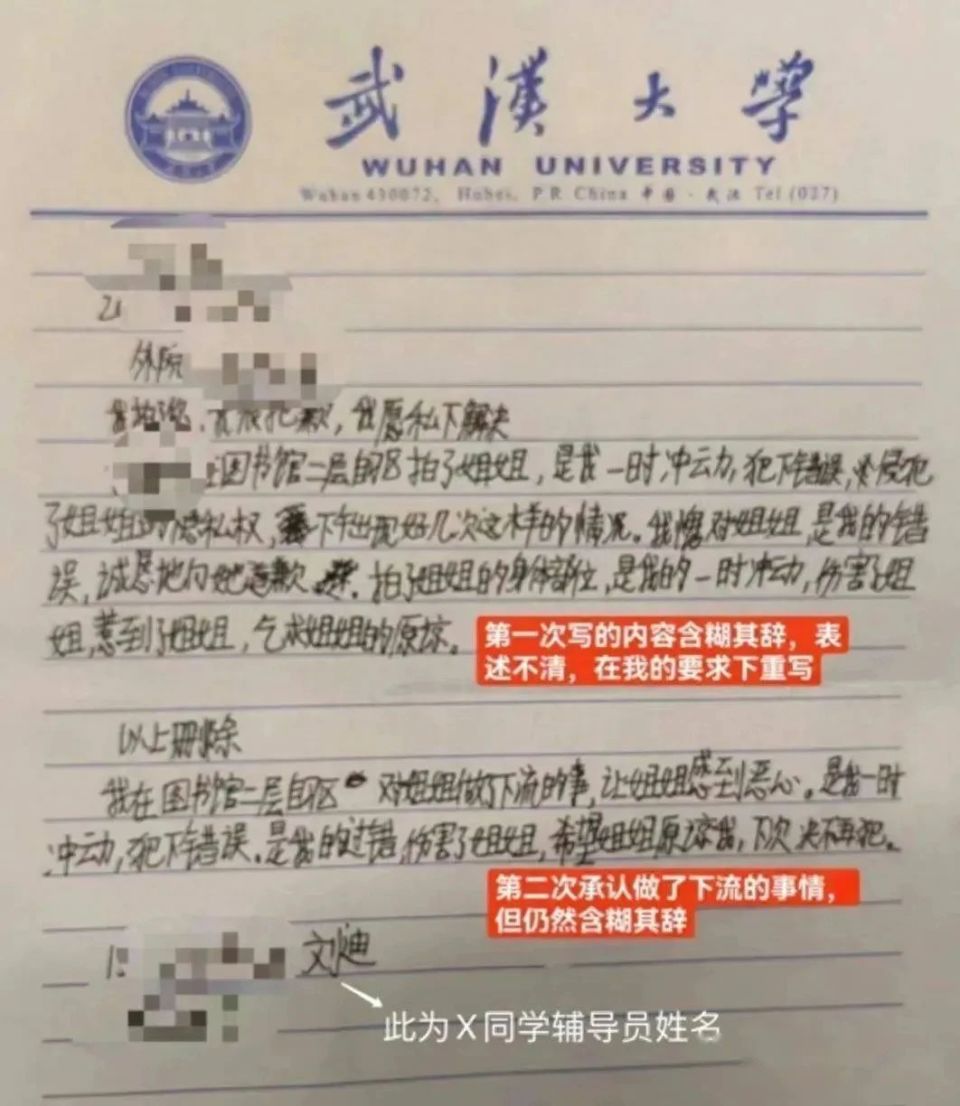 武漢大學
WUHAN UNIVERSITY
Wuhan 430072, Hubei, P R China 中国·武汉 Tel (027)
外院
道歉，我愿私下解决
在图书馆二层自习区拍了姐姐，是我一时冲动，犯下错误，侵犯
了姐姐的隐私权，下午出现好几次这样的情况。我愧对姐姐，是我的错
误，诚恳地向她道歉。拍了姐姐的身体部位，是我的一时冲动，伤害了姐
姐，惹到了姐姐，乞求姐姐的原谅。
第一次写的内容含糊其辞，表
述不清，在我的要求下重写
以上删除
我在图书馆二层自习区对姐姐做了下流的事，让姐姐感到恶心。是我一时
冲动，犯下错误。是我的过错，伤害了姐姐，希望姐姐原谅我，下次决不再犯。
第二次承认做了下流的事情，
但仍然含糊其辞
文迪
此为X同学辅导员姓名